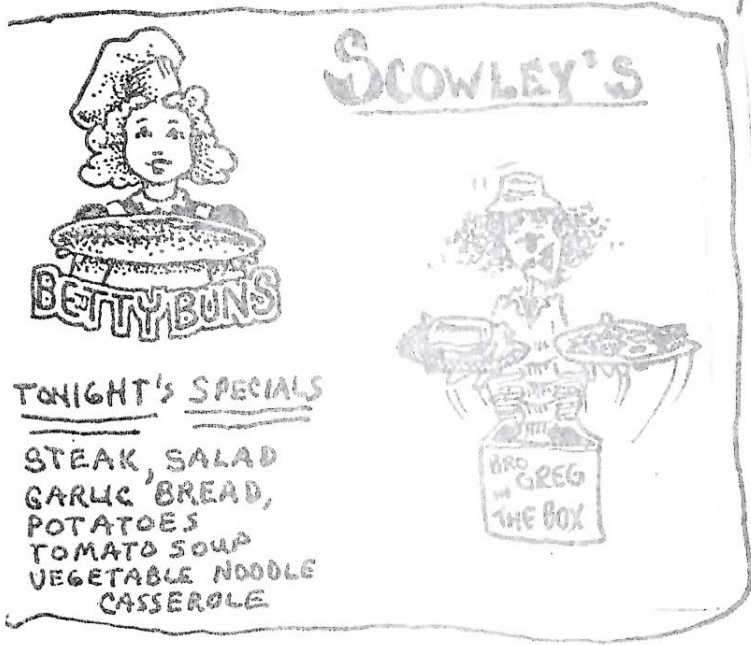 SCOWLEY'S
BETTY BUNS
TONIGHT'S SPECIALS
STEAK, SALAD
GARLIC BREAD,
POTATOES
TOMATO SOUP
VEGETABLE NOODLE
CASSEROLE
BRO
GREG
IN
THE BOX